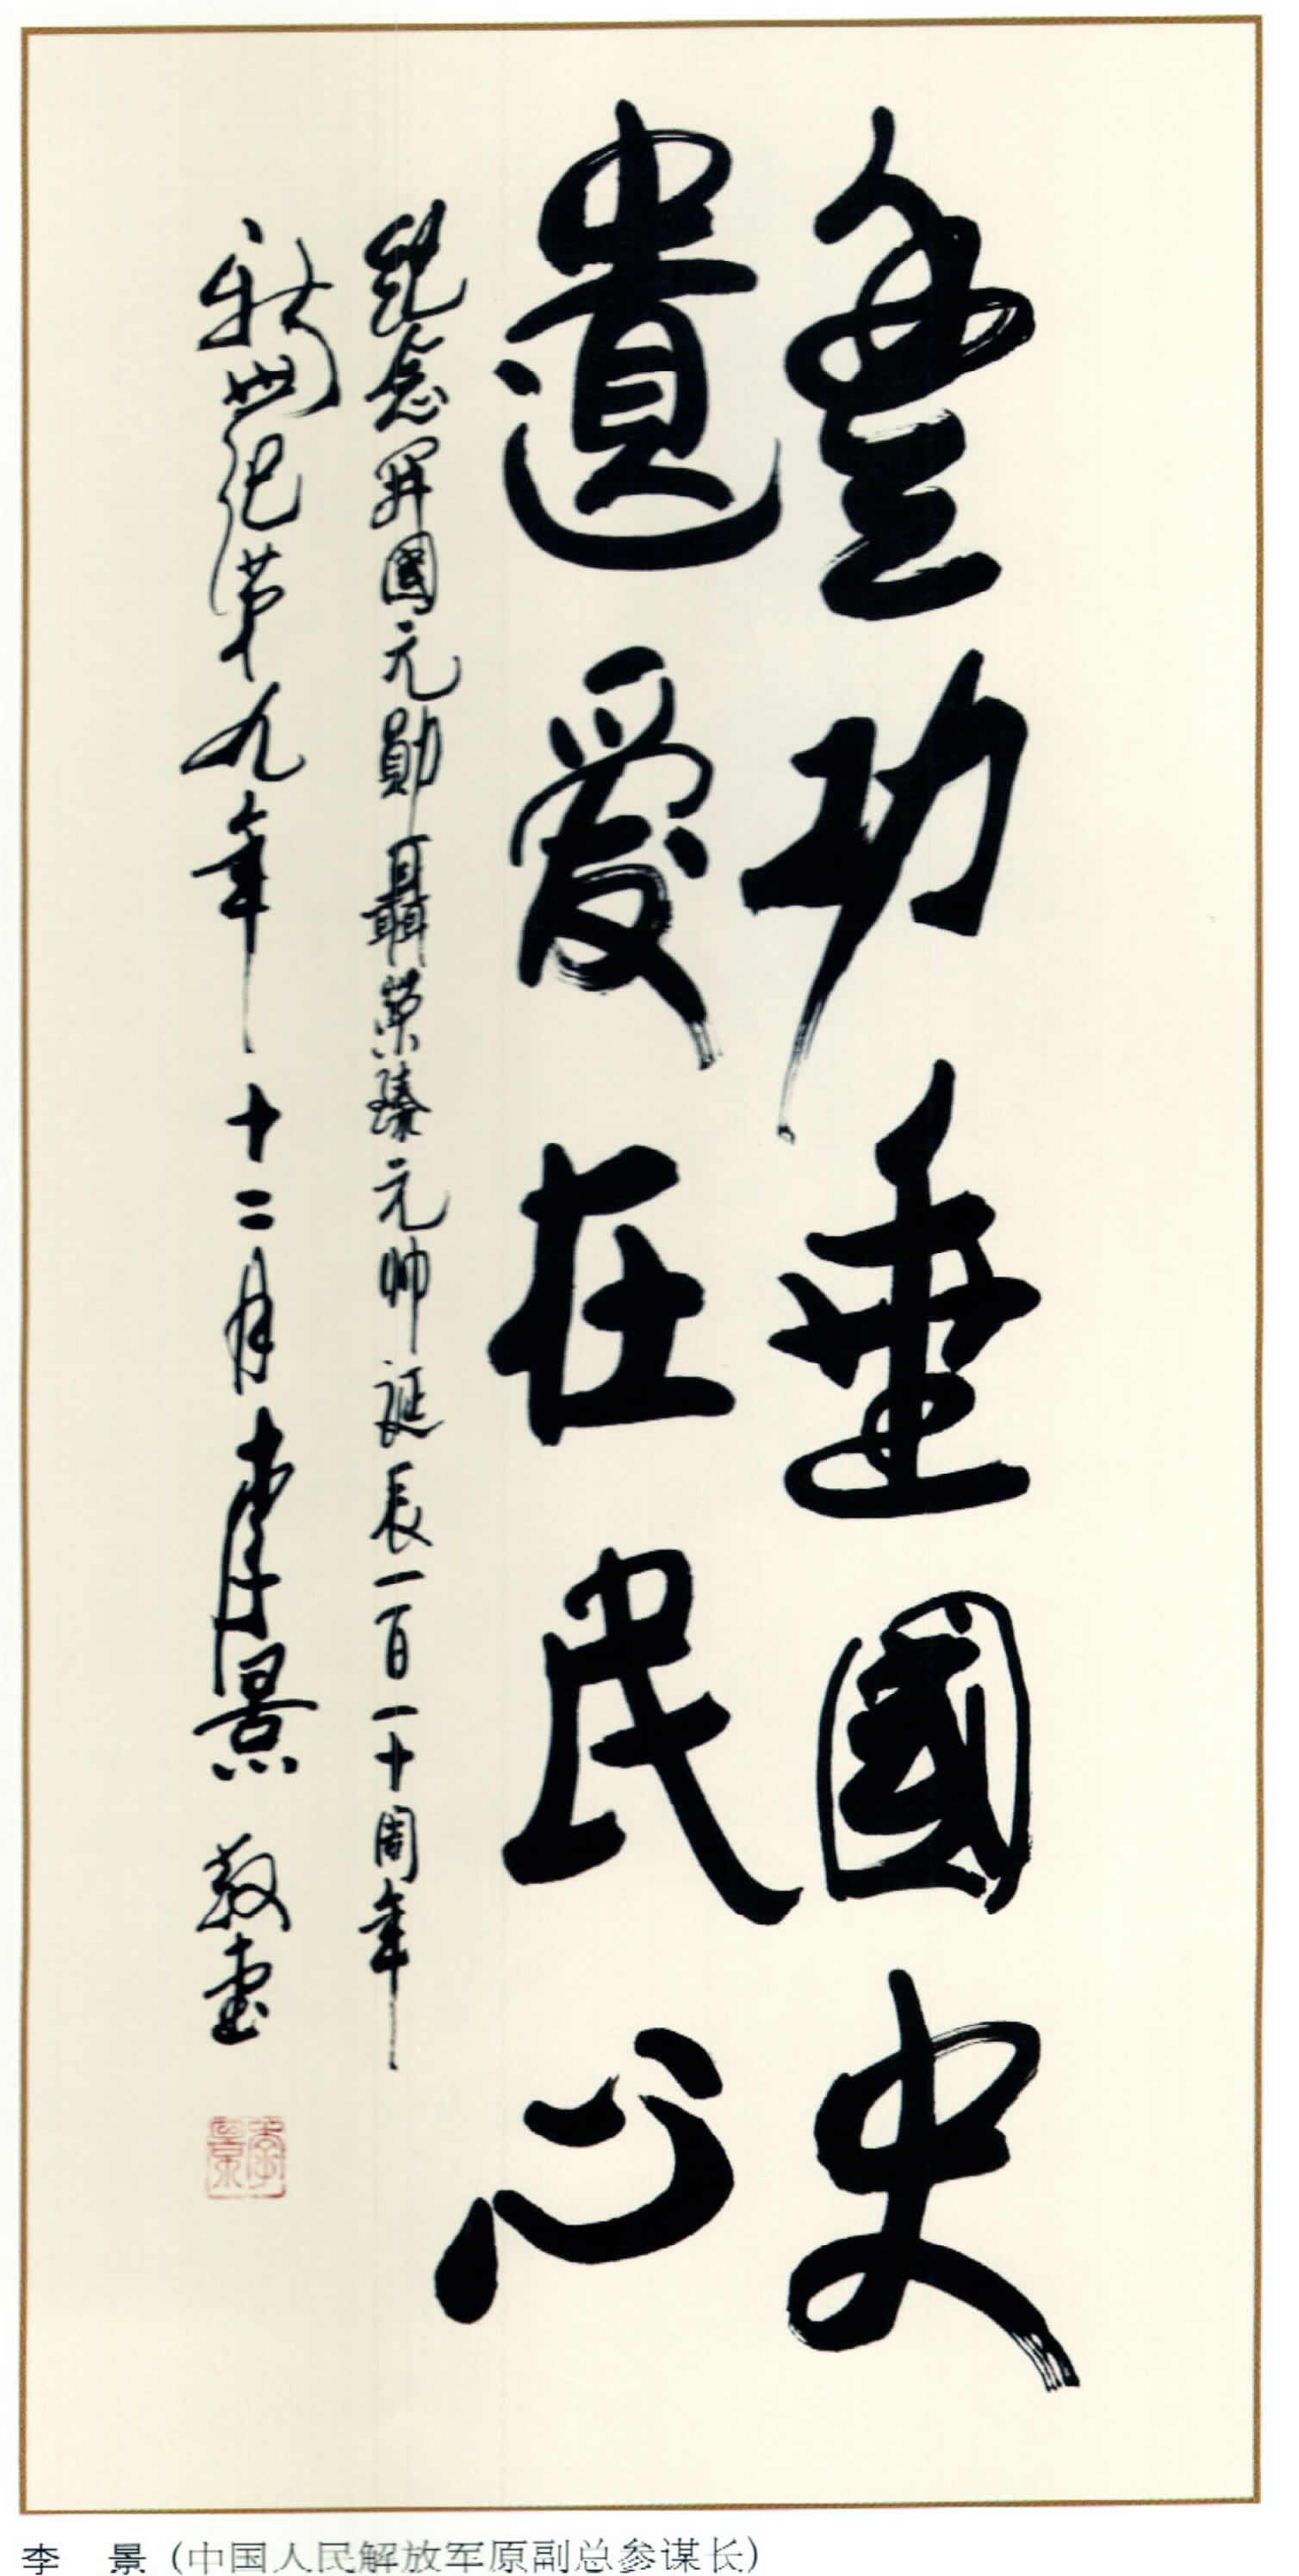 豐功垂國史
遺愛在民心
紀念開國元勛聶榮臻元帥誕辰一百一十周年
新世纪第九年十二月李景敬書
李景
李 景（中国人民解放军原副总参谋长）